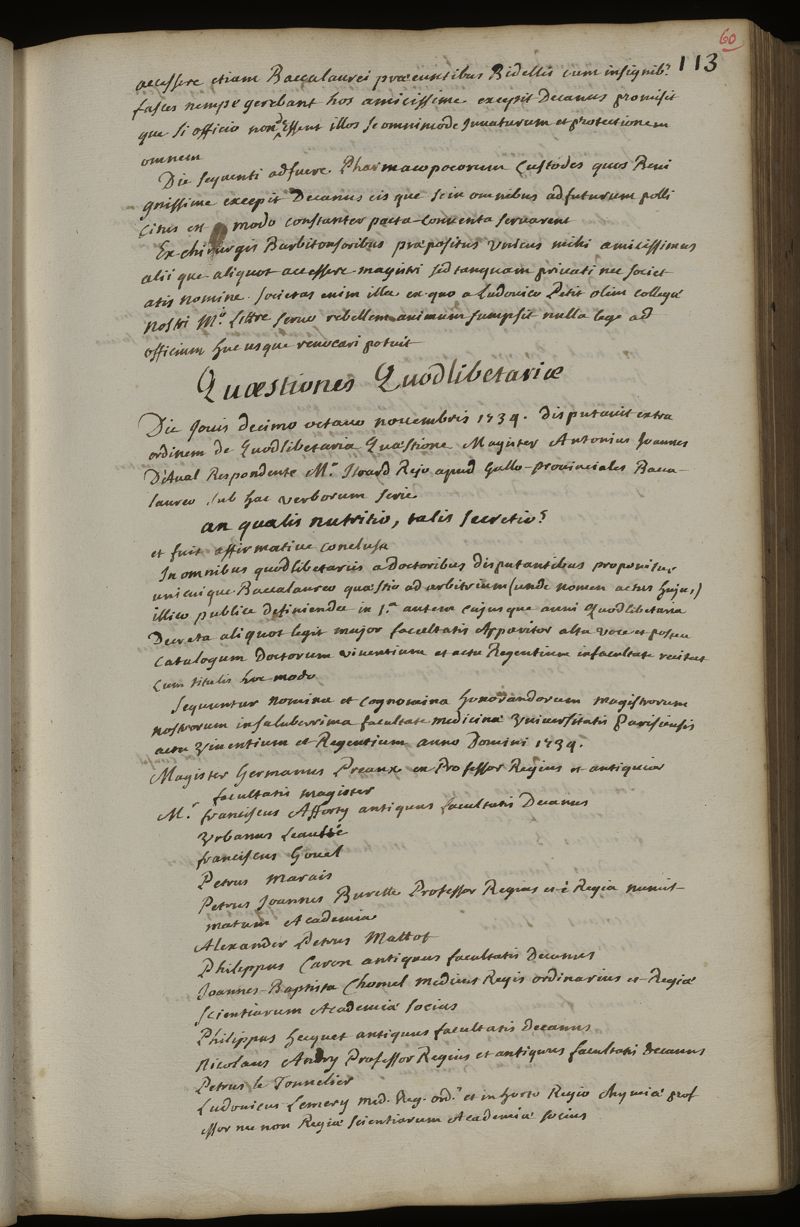 60
113
accessere etiam Baccalaurei praeeuntibus Bidellis cum insignib.s
fasces nempe gerebant hos amicissime excepit Decanus promisit
que si officio non Essent illos se omnimode Juvaturum et protectionem
omnem
Die sequenti adfuere Pharmacopoeorum Custodes quos Beni
gnissime excepit Decanus eis que se in omnibus adfuturum polli
citus est modo constanter pacta conventa servarent
Ex chirurgis Barbitonsoribus praepositus unicus mihi amicissimus
alii que aliquot accessere magistri sed tanquam privati nec societ
atis nomine. Societas enim illa ex quo a Ludovico Petit olim collega
nostri M.ri Littre servo rebellem animum sumpsit nulla lege ad
officium huc usque revocari potuit
Quaestiones Quodlibetariae
Die Jovis decimo octavo novembris 1734. disputavit extra
ordinem de Quodlibetaria Quaestione Magister Antonius Joannes
Respondente M.ro Rejo apud Gallo-provinciales Bacca-
laureo sub hac verborum serie
an qualis nutritio, talis secretio?
et fuit affirmative conclusa
In omnibus quodlibetariis a doctoribus disputantibus proponitur
unicuique Baccalaureo quaestio ad arbitrium (unde nomen actus hujus)
illico publice definienda in 1.a autem cujusque anni Quodlibetaria
Decreta aliquot legit major facultatis Apparitor alta voce et postea
Catalogum Doctorum viventium et actu Regentium in facultate recitat
cum titulis hoc modo
Sequuntur nomina et cognomina honorandorum magistrorum
nostrorum in saluberrima facultate medicinae Universitatis Parisiensis
actu viventium et Regentium anno Domini 1734.
Magister Germanus Preaux ex Professor Regius et antiquior
facultatis magister
M.r franciscus Afforty antiquus facultatis Decanus
Urbanus Leaulté
franciscus Gouel
Petrus Marais
Petrus Joannes Burette Professor Regius et è Regia numis-
matum Academia
Alexander Petrus Mattot
Philippus Caron antiquus facultatis decanus
Joannes-Baptista Chomel medicus Regis ordinarius et Regiae
Scientiarum Academiae socius
Philippus Hecquet antiquus facultatis decanus
Nicolaus Andry Professor Regius et antiquus facultatis decanus
Petrus le Tonnelier
Ludovicus Lemery med. Reg. ord.s et in horto Regio chymiae prof
essor nec non Regiae scientiarum Academiae socius